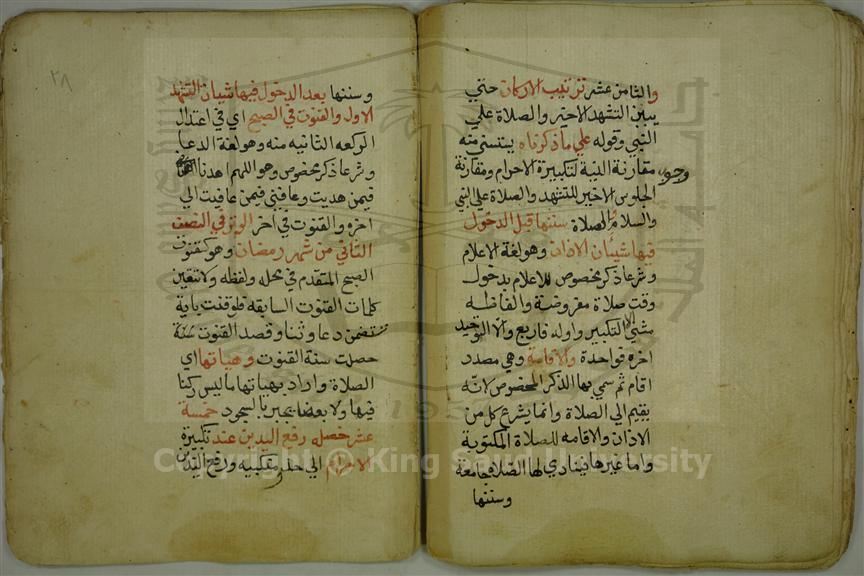 والثامن عشر ترتيب الاركان حتي
يبين التشهد الاخير والصلاة علي
النبي وقوله علي ما ذكرناه يستثني منه
وجوب مقارنة النية لتكبيرة الاحرام ومقارنة
الجلوس الاخير للتشهد والصلاة علي النبي
والسلام والصلاة سننها قبل الدخول
فيها شيئان الاذان وهو لغة الاعلام
وشرعا ذكر مخصوص للاعلام بدخول
وقت صلاة مفروضة والفاظه
مثني الا التكبير اوله فاربع والا التوحيد
اخره فواحدة والاقامة وهي مصدر
اقام ثم سمي بها الذكر المخصوص لانه
يقيم الي الصلاة وانما يشرع كل من
الاذان والاقامه للصلاة المكتوبة
واما غيرها فينادي لها الصلاة جامعة
وسننها
٢٨
وسننها بعد الدخول فيها شيان التشهد
الاول والقنوت في الصبح اي في اعتدال
الركعه الثانيه منه وهو لغة الدعا
وشرعا ذكر مخصوص وهو اللهم اهدنا
فيمن هديت وعافني فيمن عافيت الي
اخره والقنوت في اخر الوتر في النصف
الثاني من شهر رمضان وهو كقنوت
الصبح المتقدم في محله ولفظه ولا تتعين
كلمات القنوت السابقه فلو قنت باية
تتضمن دعا وثنا وقصد القنوت
حصلت سنة القنوت وهياتها اي
الصلاة واراد بهياتها ما ليس ركنا
فيها ولا بعضا يجبر بالسجود خمسة
عشر خصله رفع اليدين عند تكبيرة
الاحرام الي حذو منكبيه ورفع اليدين
Copyright © King Saud University
1957